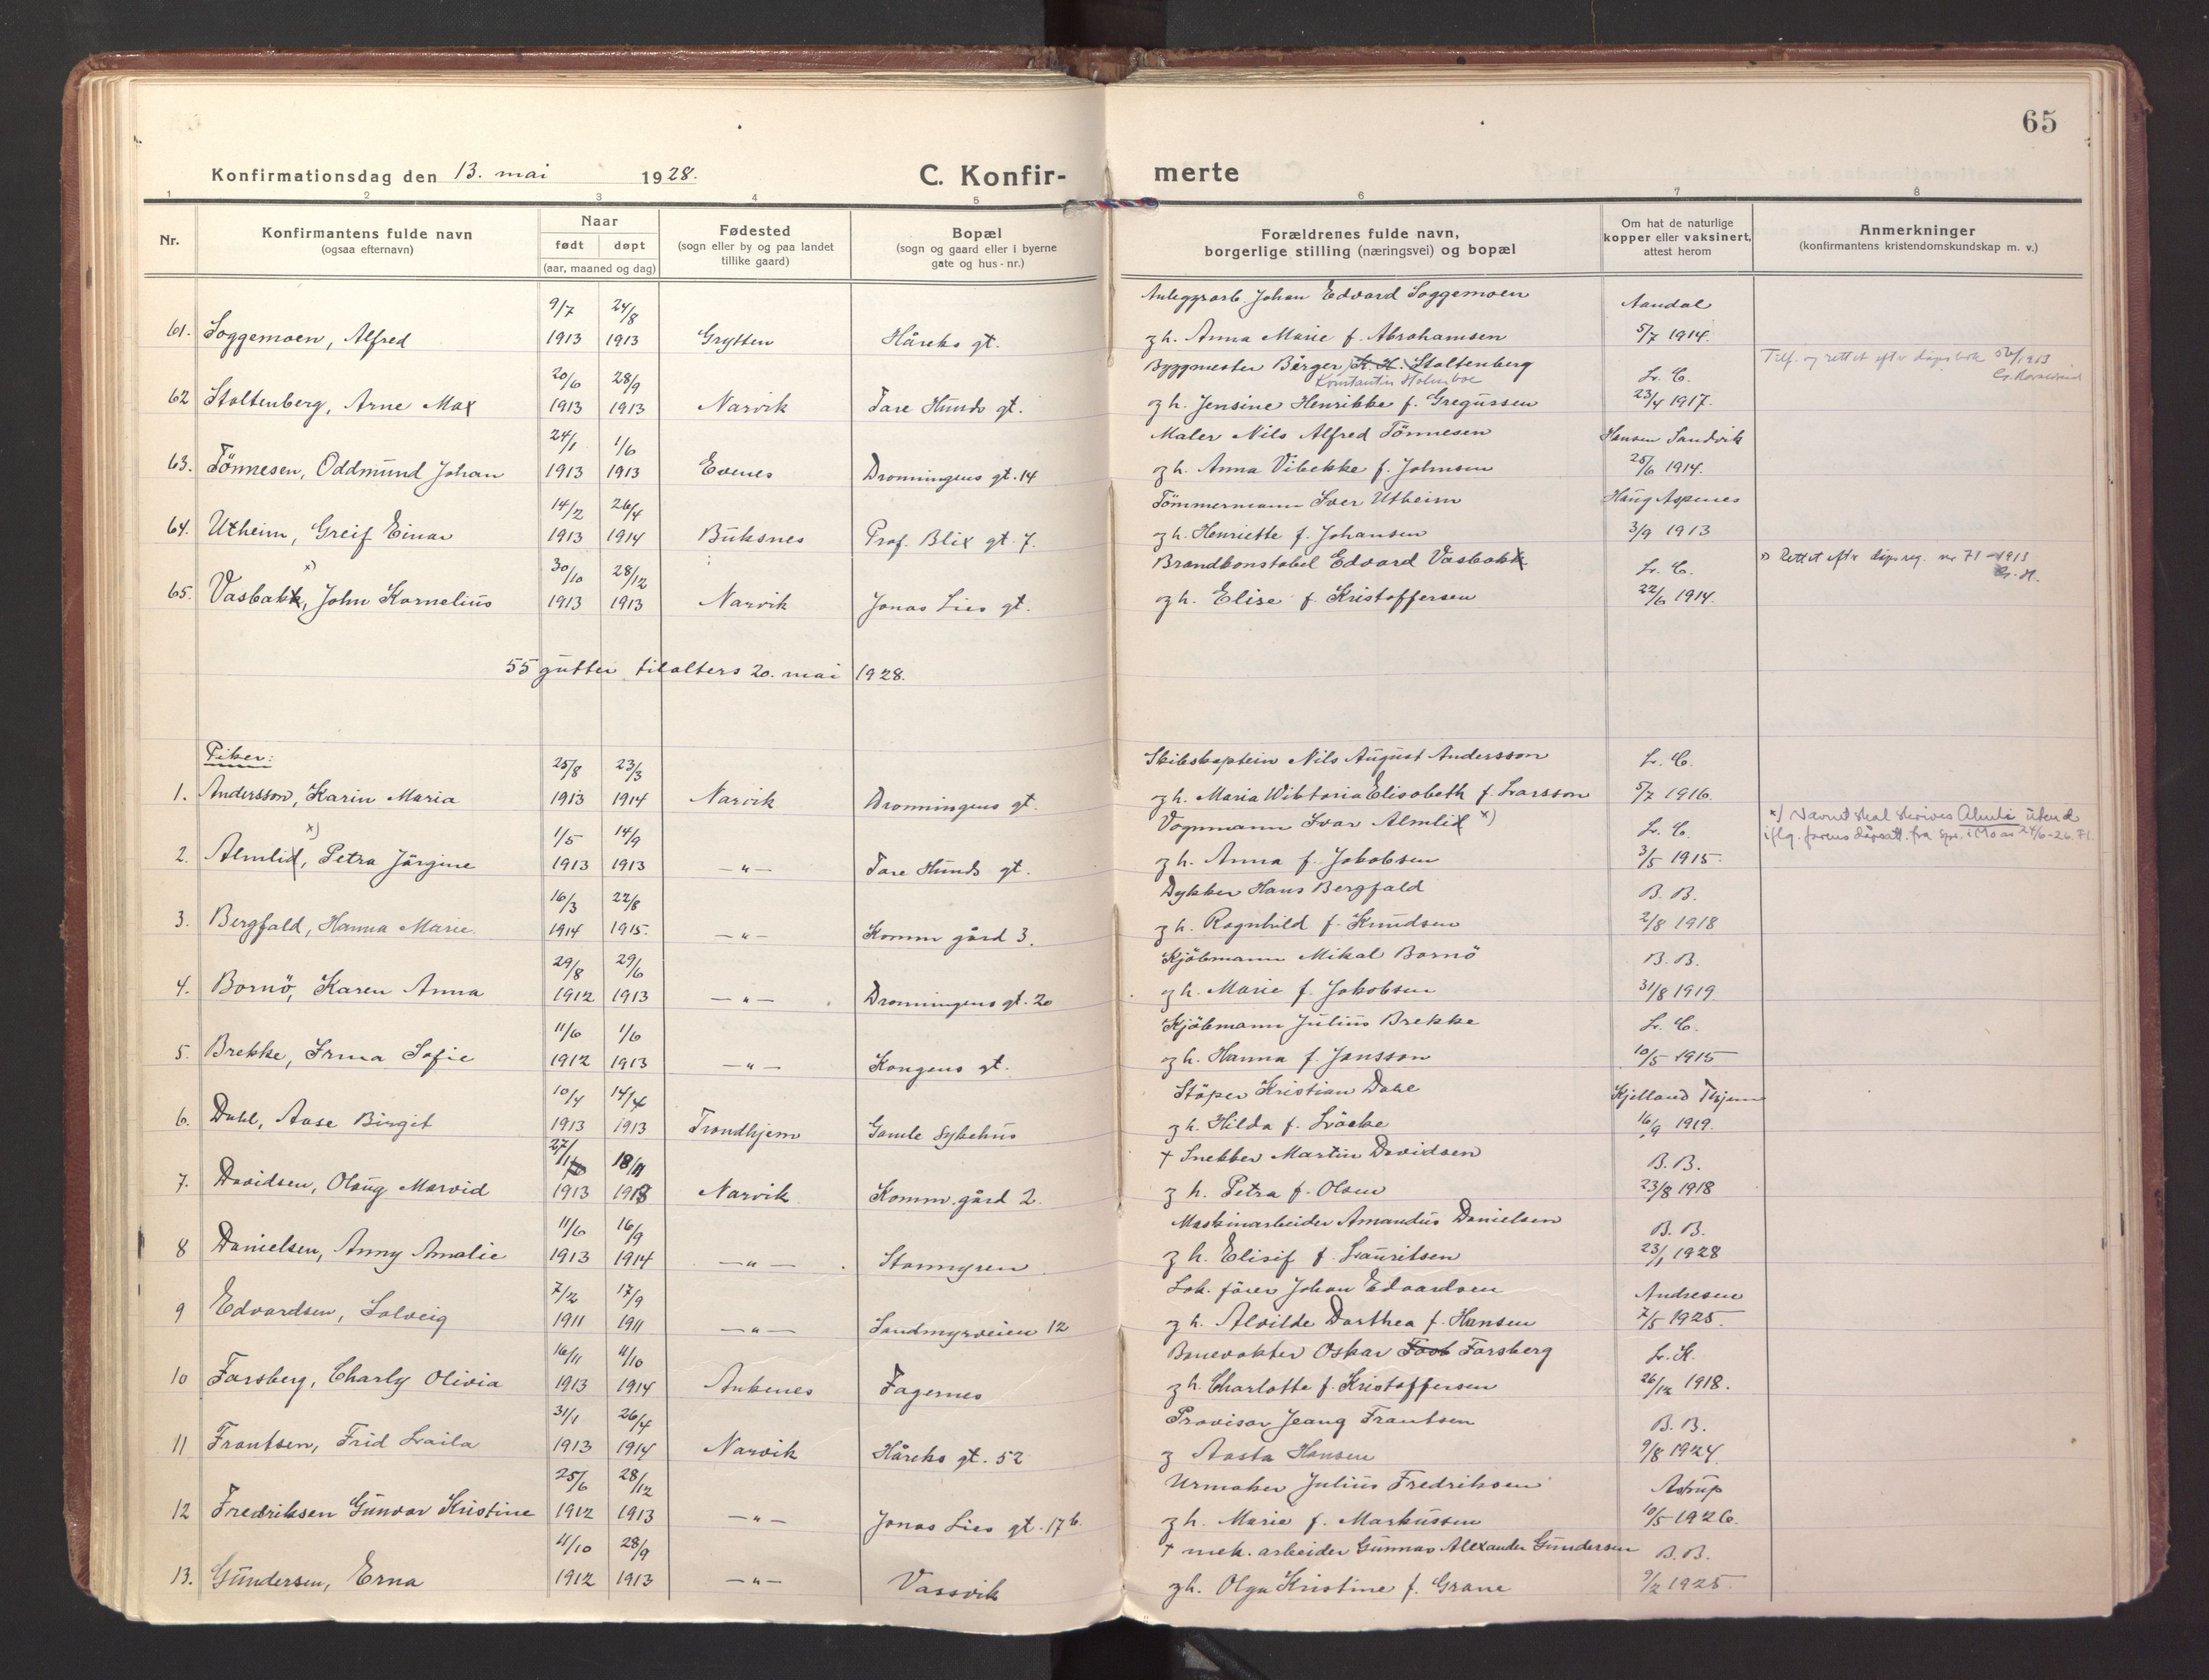 65
Konfirmationsdag den 13. mai 1928. C. Konfir- merte
1 2 3 4 5 6 7 8
Nr. Konfirmantens fulde navn (ogsaa efternavn) Naar født døpt (aar, maaned og dag) Fødested (sogn eller by og paa landet tillike gaard) Bopæl (sogn og gaard eller i byerne gate og hus-nr.) Forældrenes fulde navn, borgerlige stilling (næringsvei) og bopæl Om hat de naturlige kopper eller vaksinert, attest herom Anmerkninger (konfirmantens kristendomskundskap m. v.)
9/7 24/8 Anleggsarb. Johan Edvard Soggemoen Aandal
61. Soggemoen, Alfred 1913 1913 Grytten Håreks gt. g h. Anna Marie f. Abrahamsen 5/7 1914.
20/6 28/9 Byggmester Birger K. H. Stoltenberg L. C. Tilf. og rettet efter dåpsbok
Konstantin Holmboe
62 Stoltenberg, Arne Max 1913 1913 Narvik Tore Hunds gt. g h. Jensine Henrikke f. Gregussen 23/4 1917.
24/1 1/6 Maler Nils Alfred Tönnesen Hansen Sandvik
63. Tönnesen, Oddmund Johan 1913 1913 Evenes Dronningens gt. 14 g h. Anna Vibekke f. Johnsen 25/6 1914.
14/2 26/4 Tömmermann Iver Utheim Haug Aspenes
64. Utheim, Greif Einar 1913 1914 Buksnes Prof. Blix gt. 7. g h. Henriette f. Johansen 3/9 1913
x) 30/10 28/12 Brandkonstabel Edvard Vasbakk L. C. x) Rettet eftr dåpsreg. nr 71 - 1913
65. Vasbakk, John Kornelius 1913 1913 Narvik Jonas Lies gt. g h. Elise f. Kristoffersen 22/6 1914.
55 gutter tilalters 20. mai 1928.
Piker:
25/8 23/3 Skibskaptein Nils August Andersson L. C.
1. Andersson, Karin Maria 1913 1914 Narvik Dronningens gt. g h. Maria Wiktoria Elisabeth f. Larsson 5/7 1916.
x) 1/5 14/9 Vognmann Ivar Almlid x) L. C. x) Navnet skal skrives Almli uten d
iflg. farens dåpsatt. fra spr. i Mo av 24/6-26.
2. Almlid, Petra Jörgine 1913 1913 —"— Tore Hunds gt. g h. Anna f. Jakobsen 3/5 1915.
16/3 22/8 Dykker Hans Bergfald B. B.
3. Bergfald, Hanna Marie. 1914 1915. —"— Komm gård 3. g h. Ragnhild f. Knudsen 2/8 1918
29/8 29/6 Kjöbmann Mikal Bornö B. B.
4. Bornö, Karen Anna 1912 1913 —"— Dronningens gt. 20 g h. Marie f. Jakobsen 31/8 1919
11/6 1/6 Kjöbmann Julius Brekke L. C.
5. Brekke, Irma Sofie 1912 1913 —"— Kongens gt. g h. Hanna f. Jansson 10/5 1915
10/4 14/4 Stöper Kristian Dahl Kjelland Thjem
6. Dahl, Aase Birgit 1913 1913 Trondhjem Gamle Sykehus g h. Hilda f. 16/9 1919.
27/11 18/11 † Snekker Martin Davidsen B. B.
7. Davidsen, Olaug Marvid 1913 1918 Narvik Komm. gård 2. g h. Petra f. Olsen 23/8 1918
11/6 16/9 Maskinarbeider Amandus Danielsen B. B.
8 Danielsen, Anny Amalie 1913 1914 —"— Stanmyren g h. Elisif f. Lauritsen 23/1 1928
7/12 17/9 Lok. förer Johan Edvardsen Andresen
9 Edvardsen, Solveig 1911 1911 —"— Sandmyrveien 12 g h. Alvilde Dorthea f. Hansen 7/5 1925.
16/11 11/10 Banevokter Oskar Forsberg L. K.
10 Forsberg, Charly Olivia 1913 1914 Ankenes Fagernes g h. Charlotte f. Kristoffersen 26/12 1918.
31/1 26/4 Provisor Jeang Frantsen B. B.
11 Frantsen, Frid Laila 1913 1914 Narvik Håreks gt. 52 g Aasta Hansen 9/8 1924.
25/6 28/12 Urmaker Julius Fredriksen Astrup
12 Fredriksen Gunvor Kristine 1912 1913 —"— Jonas Lies gt. 17 b. g h. Marie f. Markussen 10/5 1926.
11/10 28/9 † mek. arbeider Gunnar Alexander Gundersen B. B.
13. Gundersen, Erna 1912 1913 —"— Vassvik g h. Olga Kristine f. Grane 9/2 1925.